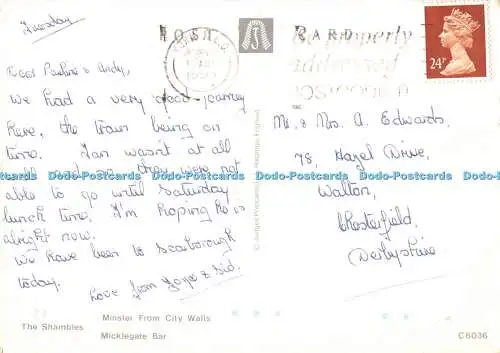 Tuesday
POST CARD
Be properly
addressed
24P
Dear Pauline & Andy,
We had a very good journey
here, the train being on
time. Ian wasn't at all
they were not
able to go until Saturday
lunch time. I'm hoping he is
alright now.
We have been to Scarborough
today.
Love from Joyce & Sid.
Mr. & Mrs. A. Edwards,
78, Hazel Drive,
Walton,
Chesterfield,
Derbyshire
Dodo-Postcards Dodo-Postcards Dodo-Postcards Dodo-Postcards
Minster From City Walls
The Shambles
Micklegate Bar
C6036